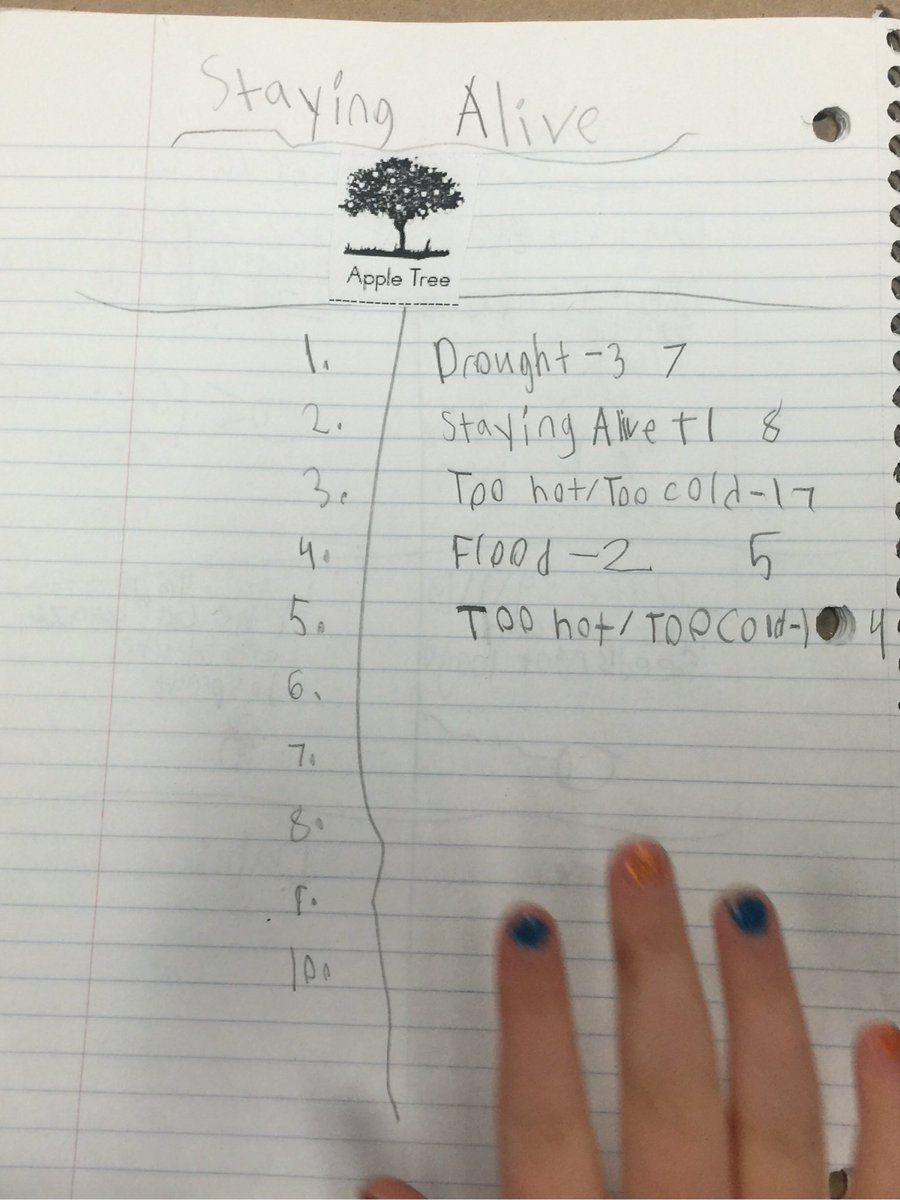 Staying Alive
Apple Tree
1. Drought -3 7
2. Staying Alive +1 8
3. Too hot/Too cold -1 7
4. Flood -2 5
5. Too hot/Too cold -1 4
6.
7.
8.
9.
10.